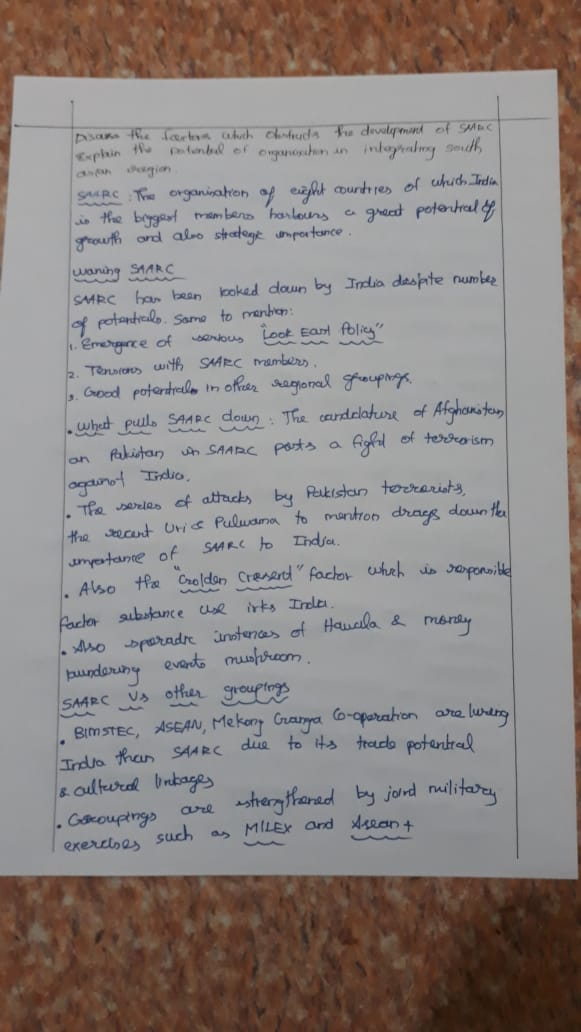 Discuss the factors which obstructs the development of SAARC
Explain the potential of organisation in integrating south
asian region.
SAARC : The organisation of eight countries of which India
is the biggest members harbours a great potential of
growth and also strategic importance.
Waning SAARC
SAARC has been looked down by India despite number
of potentials. Some to mention:
1. Emergence of serious "Look East Policy"
2. Tensions with SAARC members.
3. Good potentials in other regional groupings.
• What pulls SAARC down : The candidature of Afghanistan
an Pakistan in SAARC posts a fight of terrorism
against India.
• The series of attacks by Pakistan terrorists,
the recent Uri & Pulwama to mention drags down the
importance of SAARC to India.
• Also the "Golden Cresent" factor which is responsible
factor substance use irks India.
• Also sporadic instences of Hawala & money
laundering events mushroom.
SAARC Vs other groupings
• BIMSTEC, ASEAN, Mekong Ganga Co-operation are luring
India than SAARC due to its trade potential
& cultural linkages
• Groupings are strengthened by joint military
exercises such as MILEX and Asean +